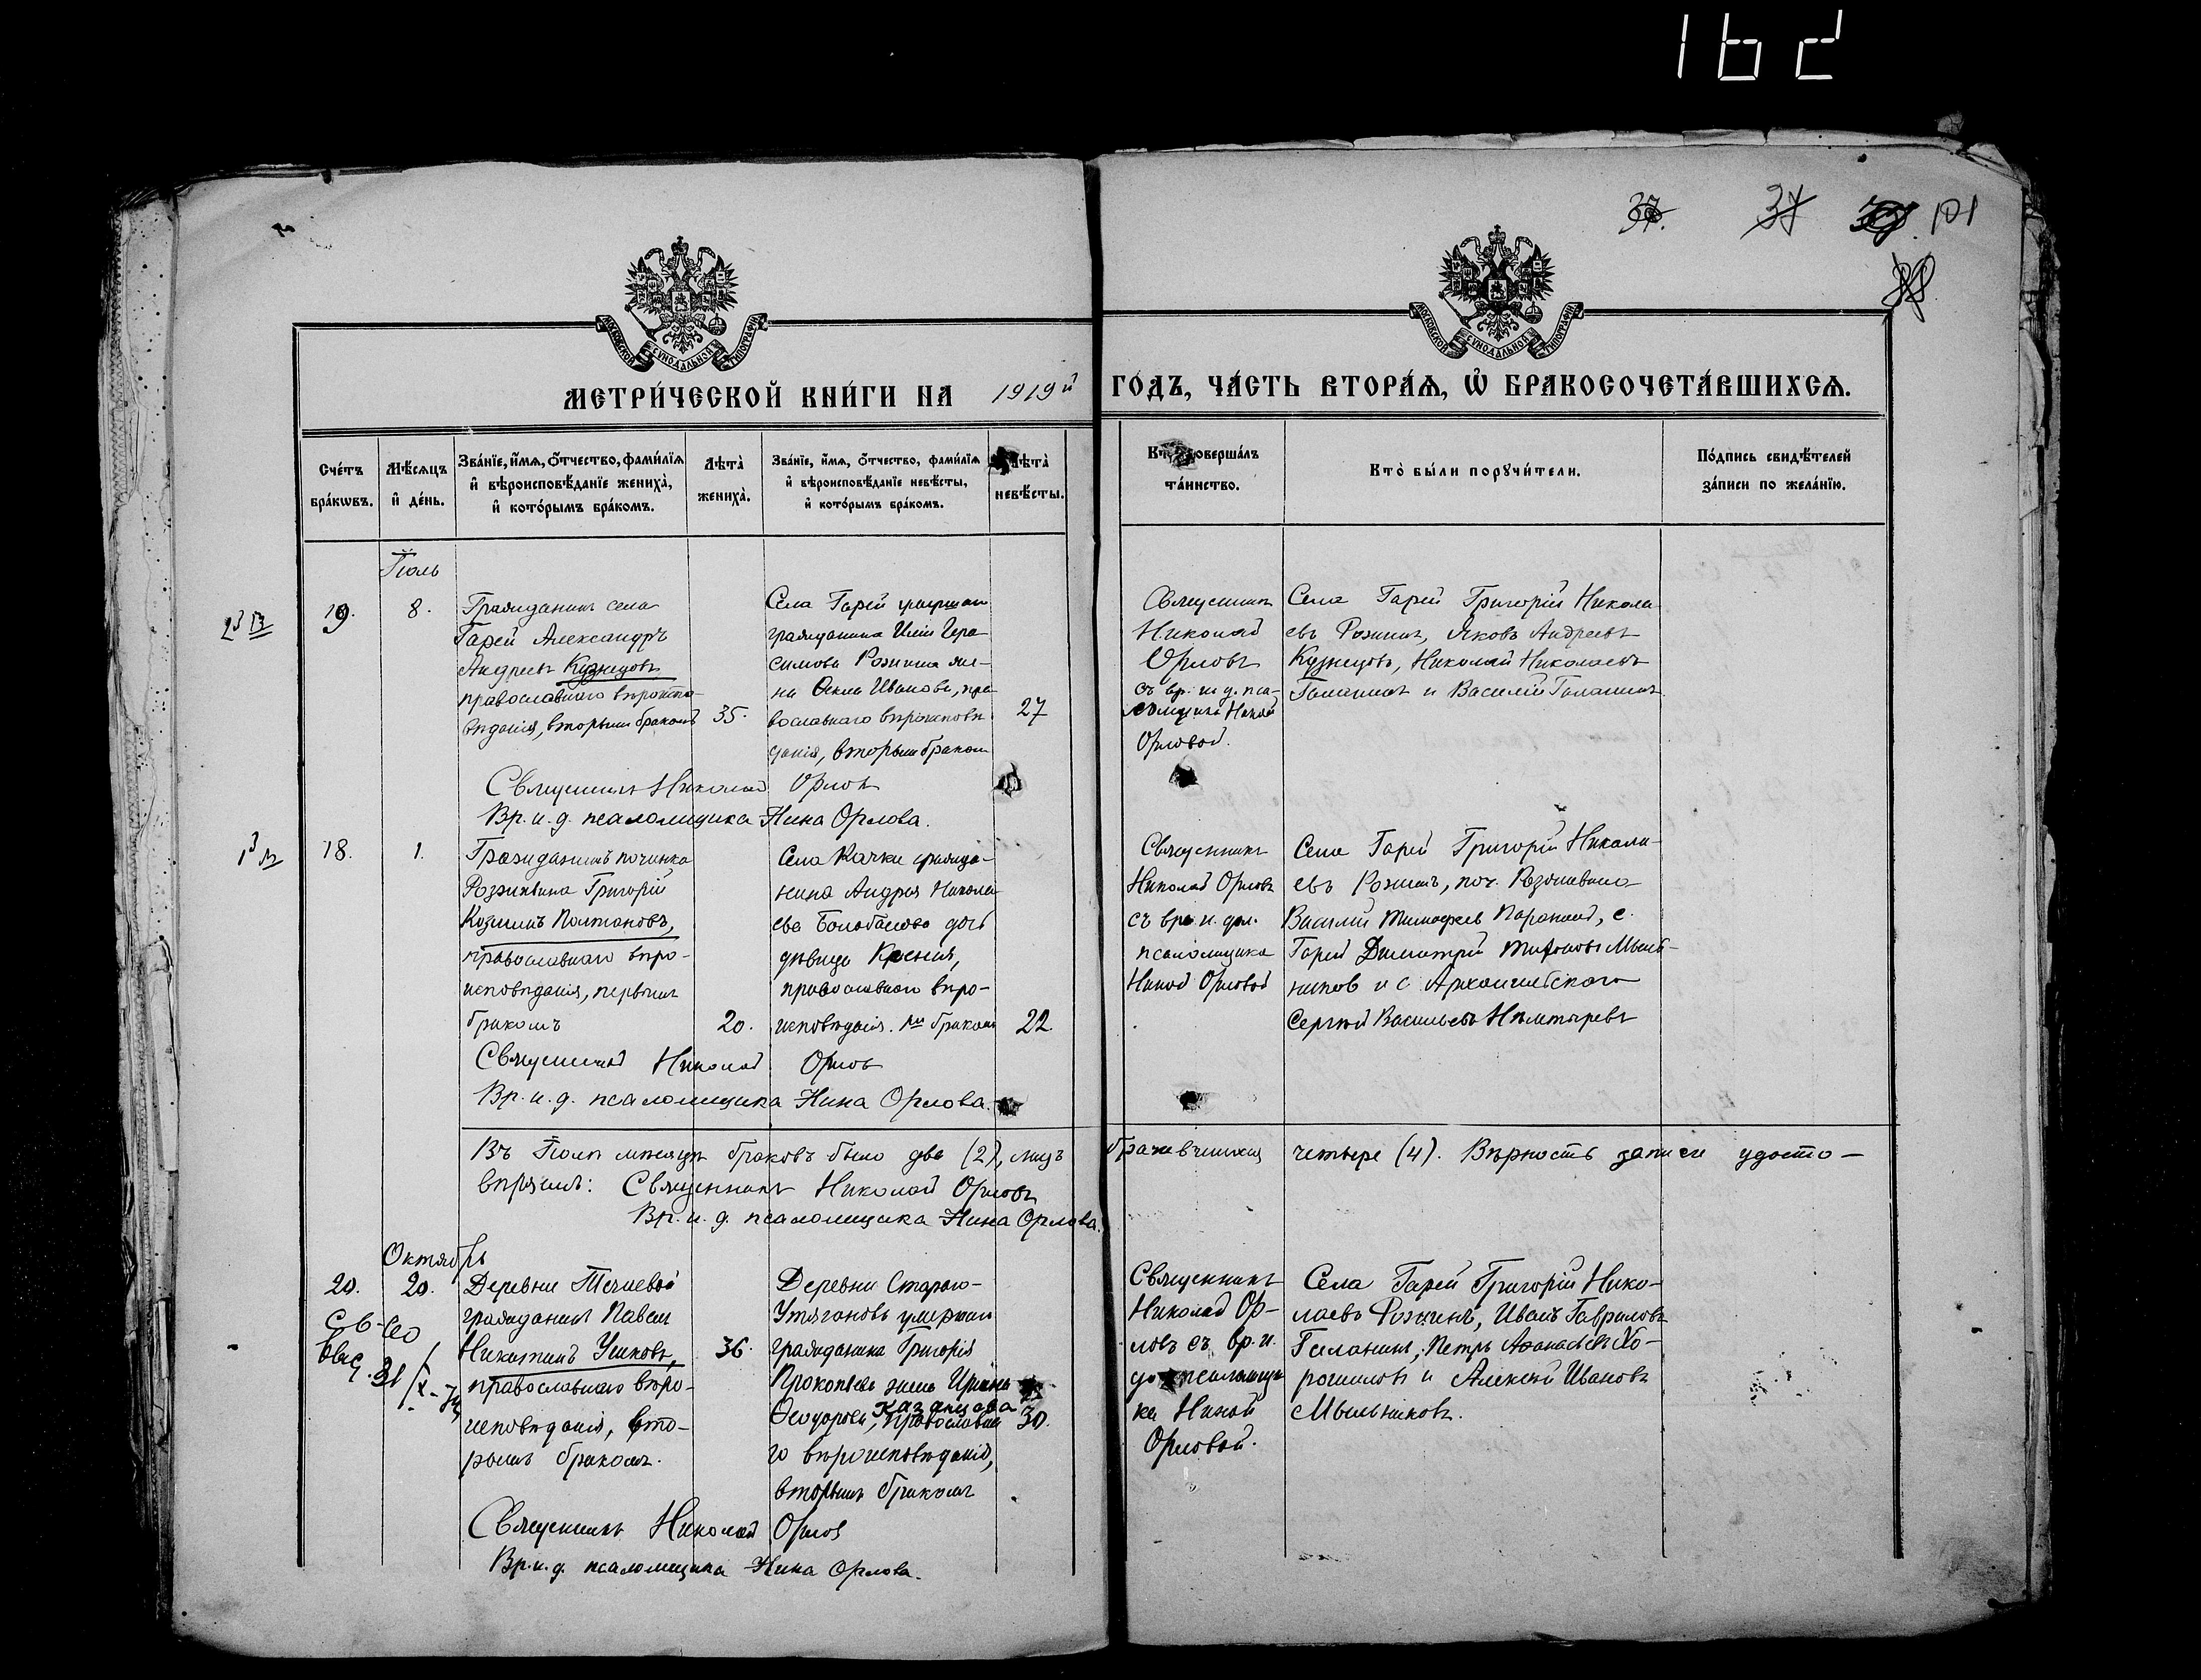 162
37. 37 101
МОСКОВСКОЙ СѴНОДАЛЬНОЙ ТИПОГРАФІИ
МОСКОВСКОЙ СѴНОДАЛЬНОЙ ТИПОГРАФІИ
МЕТРИ́ЧЕСКОЙ КНИ́ГИ НА 1919й ГОДЪ, ЧА́СТЬ ВТОРА́Я, Ѡ БРАКОСОЧЕТА́ВШИХСЯ.
Сче́тъ бра́кѡвъ.
Мѣ́сяцъ и де́нь.
Зва́нїе, и́мя, ѻ́тчество, фами́лїя
и вѣроисповѣ́данїе жениха̀,
и кото́рымъ бра́комъ.
Лѣта̀ жениха̀.
Зва́нїе, и́мя, ѻ́тчество, фами́лїя
и вѣроисповѣ́данїе невѣ́сты,
и кото́рымъ бра́комъ.
Лѣта̀ невѣ́сты.
Кто̀ соверша́лъ
та́инство.
Кто̀ бы́ли порꙋчи́тели.
По́дпись свидѣ́телей
за́писи по жела́нїю.
Іюль
19. 8.
Гражданинъ села
Гарей Александръ
Андреевъ Кузнецовъ
православнаго вѣроиспо-
вѣданія, вторымъ бракомъ
35.
Села Гарей умершаго
гражданина Гера-
симова Рожина же-
на Ѳекла Иванова, пра-
вославнаго вѣроисповѣ
данія, вторымъ бракомъ
27
Священникъ
Николай
Орловъ
съ вр. и. д. пса-
ломщика Ниной
Орловой.
Села Гарей Григорій Никола
евъ Рожинъ, Яковъ Андреевъ
Кузнецовъ, Николай Николаевъ
Галанинъ и Василій Галанинъ.
Священникъ Николай Орловъ
Вр. и. д. псаломщика Нина Орлова.
18. 1.
Гражданинъ починка
Григорій
Козминъ Полтановъ,
православнаго вѣро-
исповѣданія, первымъ
бракомъ
20.
Села Качки гражда-
нина Андрея Никола
ева дочь
дѣвица Ксенія,
православнаго вѣро-
исповѣданія. 1м бракомъ
22.
Священникъ
Николай Орловъ
съ вр. и. дол.
псаломщика
Ниной Орловой
Села Гарей Григорій Никола-
евъ Рожинъ, поч.
Василій Тимофеевъ, с.
Гарей Димитрій Мыль-
никовъ и с. Архангельского
Сергѣй Васильевъ
Священникъ Николай Орловъ
Вр. и. д. псаломщика Нина Орлова.
Въ Іюлѣ мѣсяцѣ браковъ было два (2), лицъ четыре (4). Вѣрность записи удосто-
вѣряемъ: Священникъ Николай Орловъ
Вр. и. д. псаломщика Нина Орлова.
Октябрь
20. 20.
Св-во
Деревни
гражданинъ Павелъ
Никитинъ Ушковъ,
православнаго вѣро-
исповѣданія, вто-
рымъ бракомъ.
36.
Деревни Стараго-
умершаго
гражданина Григорія
Прокопьева жена Ирина
Казанцова
Ѳеодорова, православна
го вѣроисповѣданія,
вторымъ бракомъ
30.
Священникъ
Николай Ор-
ловъ съ вр. и.
до псаломщи
ка Ниной
Орловой.
Села Гарей Григорій Нико-
лаевъ Рожинъ, Иванъ Гавриловъ
Галанинъ, Петръ Аѳанасьевъ Хо-
рошиловъ и Алексѣй Ивановъ
Мыльниковъ.
Священникъ Николай Орловъ
Вр. и. д. псаломщика Нина Орлова.